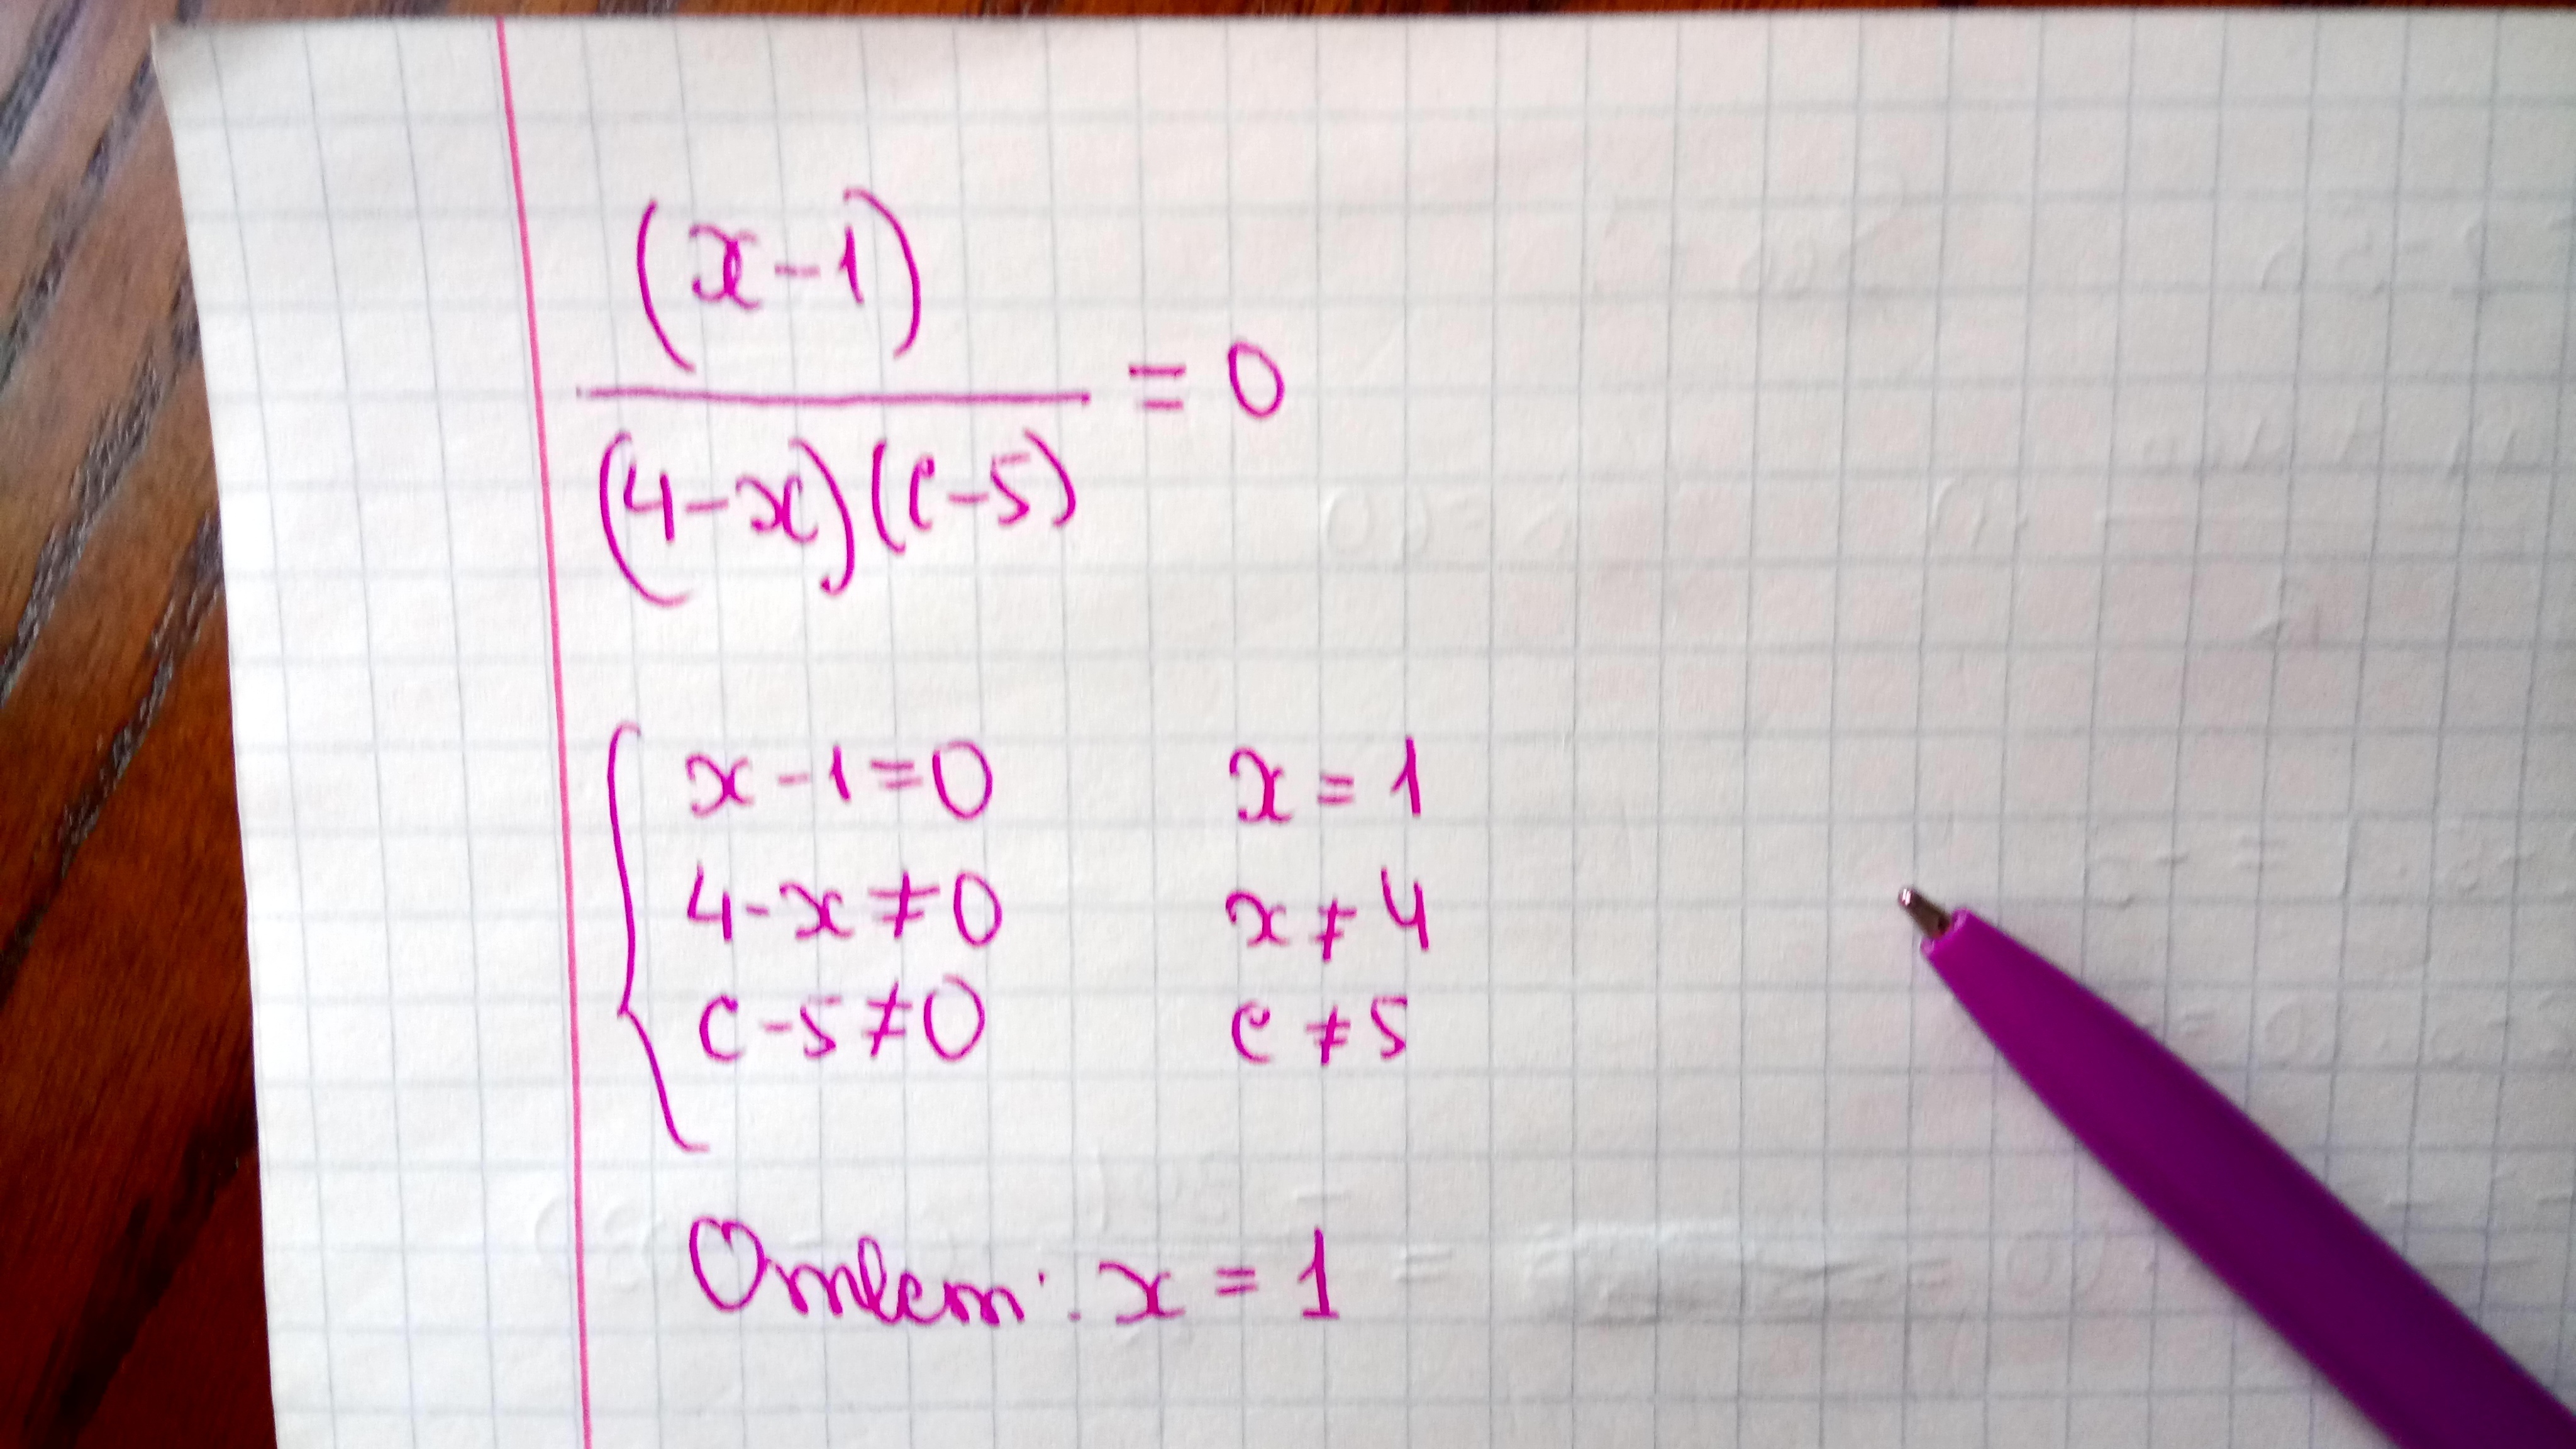 (x-1)
(4-x)(c-5) = 0
x-1=0 x=1
4-x≠0 x≠4
c-5≠0 c≠5
Ответ: x=1